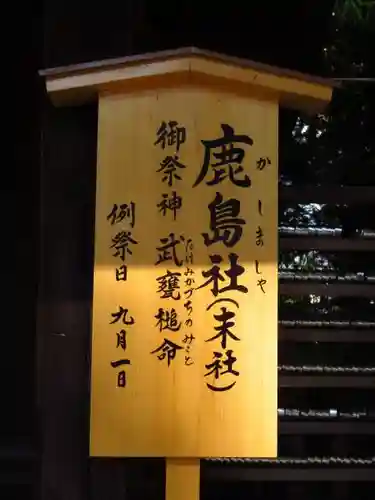 鹿島社(末社)
かしましゃ
御祭神 武甕槌命
たけみかづちのみこと
例祭日 九月一日